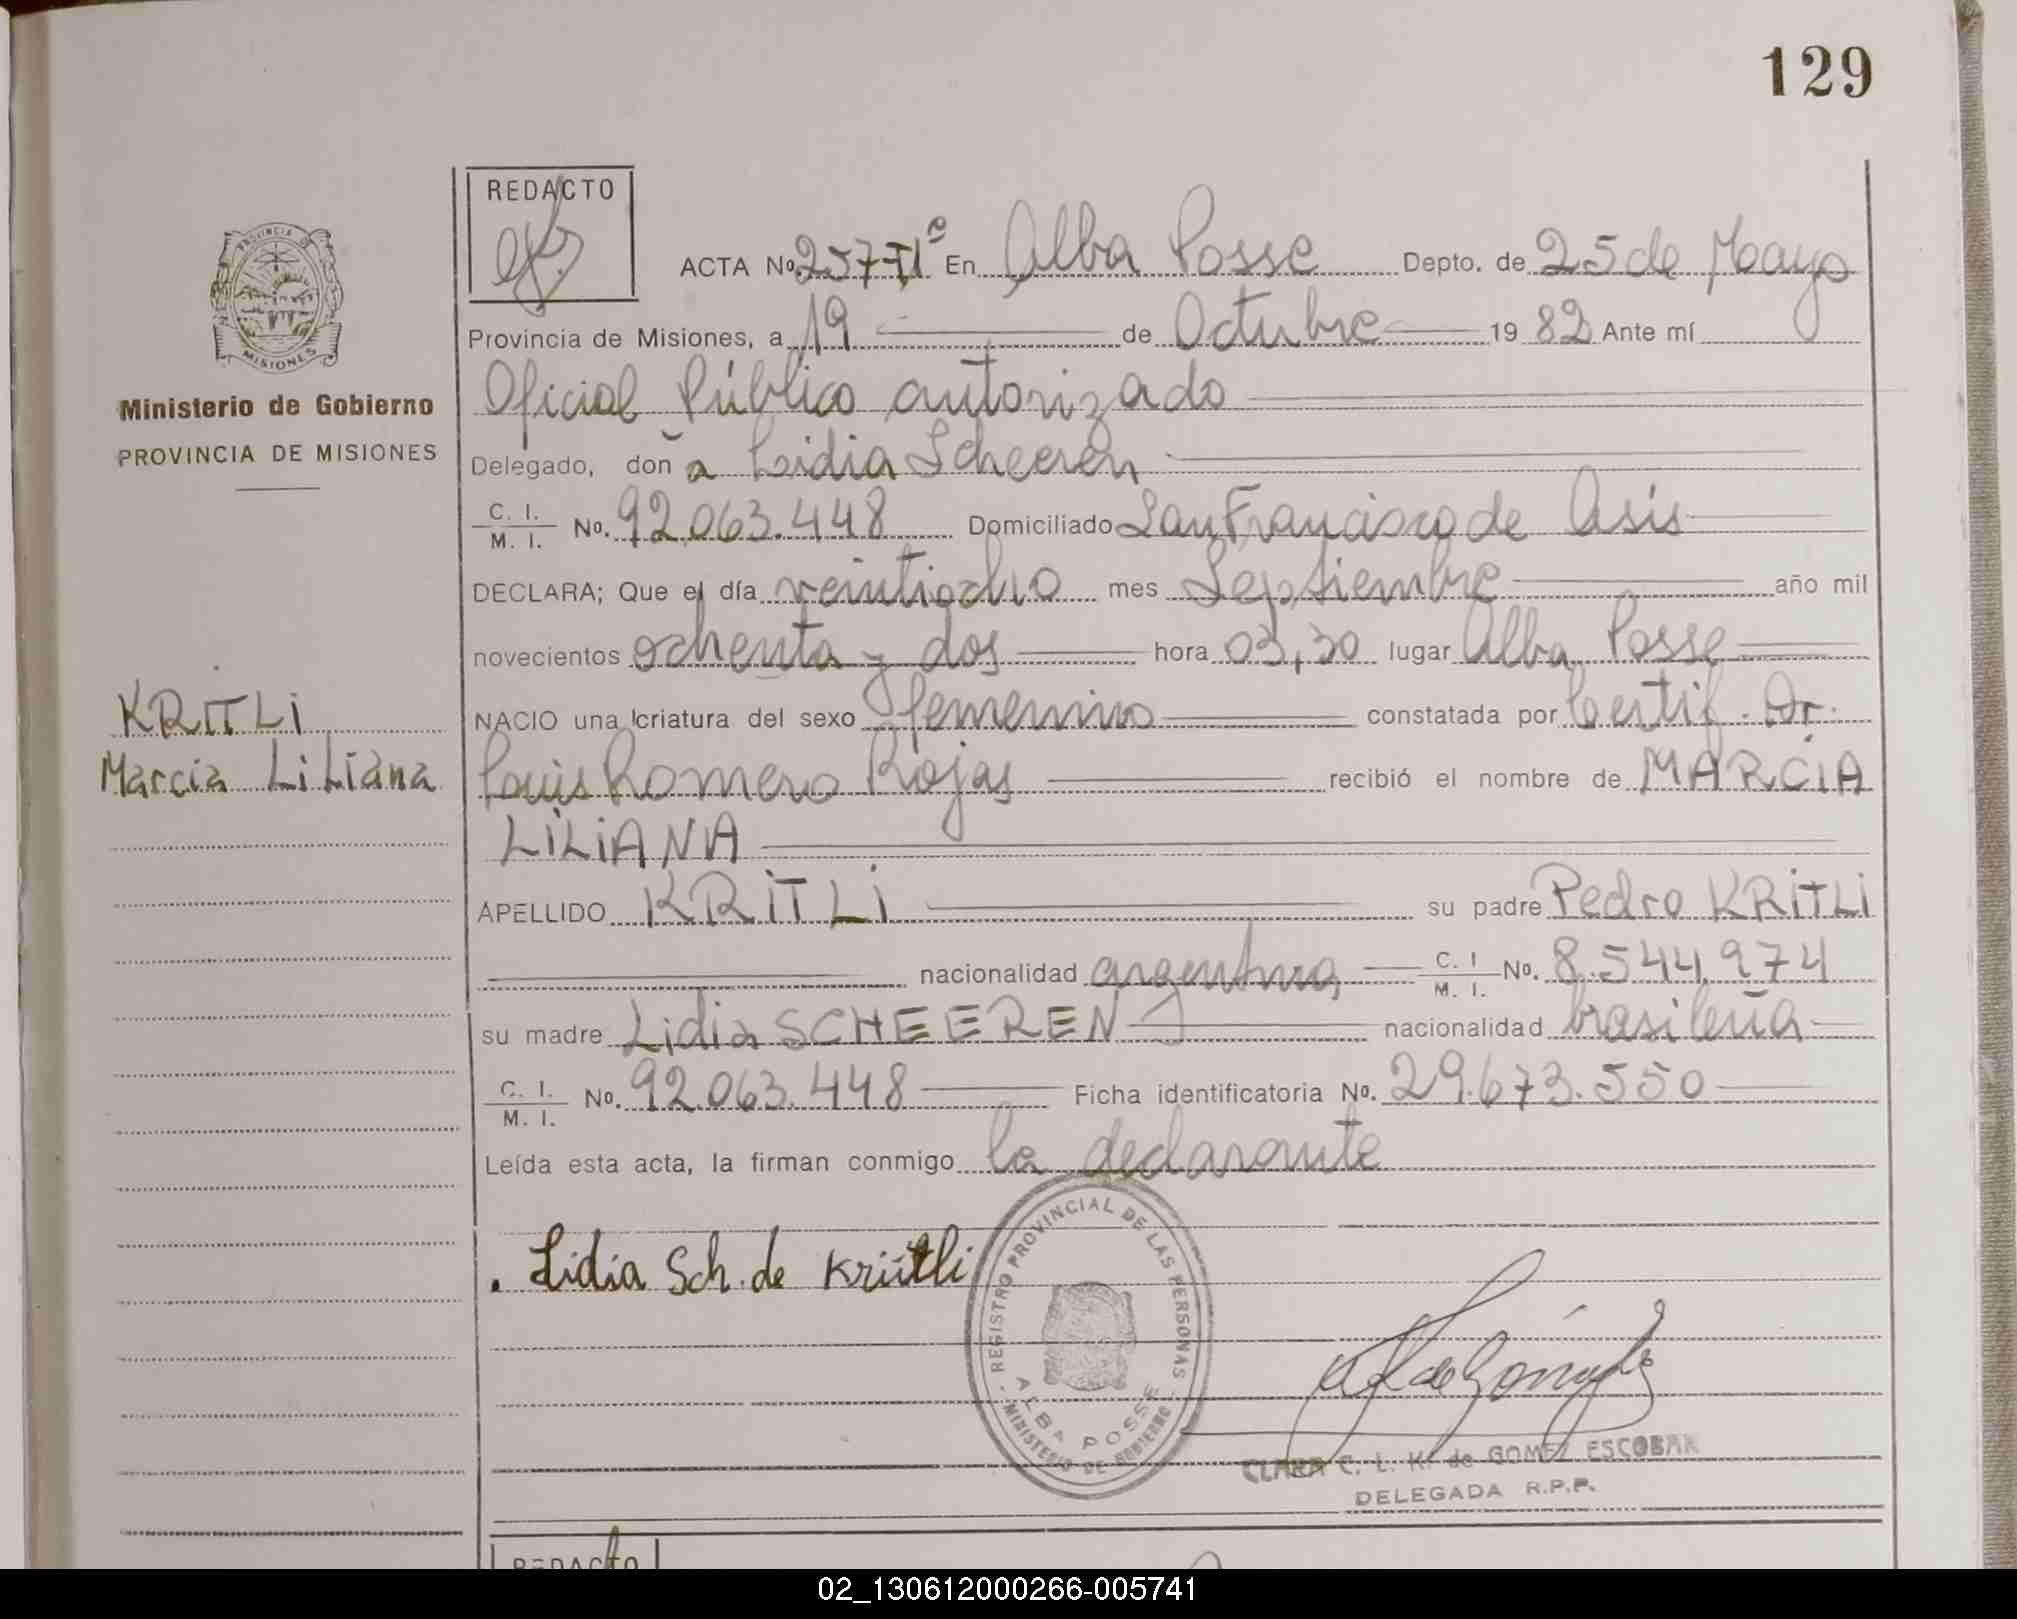 129
REDACTO
ACTA No. 257-Tº En Alba Posse Depto. de 25 de Mayo
Provincia de Misiones, a 19 de Octubre 1982 Ante mí
Oficial Público autorizado
Delegado, don a Lidia Scheeren
C. I. / M. I. No. 92.063.448 Domiciliado San Francisco de Asis
DECLARA; Que el día veintiocho mes Septiembre año mil
novecientos ochenta y dos hora 03,30 lugar Alba Posse
NACIO una criatura del sexo femenino constatada por Certif. Dr.
Luis Romero Rojas recibió el nombre de MARCIA
LILIANA
APELLIDO KRITLI su padre Pedro KRITLI
nacionalidad argentina C. I / M. I. No. 8.544.974
su madre Lidia SCHEEREN nacionalidad brasileña
C. I. / M. I. No. 92.063.448 Ficha identificatoria No. 29.673.550
Leída esta acta, la firman conmigo la declarante
PROVINCIA DE
MISIONES
Ministerio de Gobierno
PROVINCIA DE MISIONES
KRITLI
Marcia Liliana
. Lidia Sch. de Krütli
REGISTRO PROVINCIAL DE LAS PERSONAS
ALBA POSSE
MINISTERIO DE GOBIERNO
CLARA C. L. K. de GOMEZ ESCOBAR
DELEGADA R.P.P.
REDACTO
02_130612000266-005741